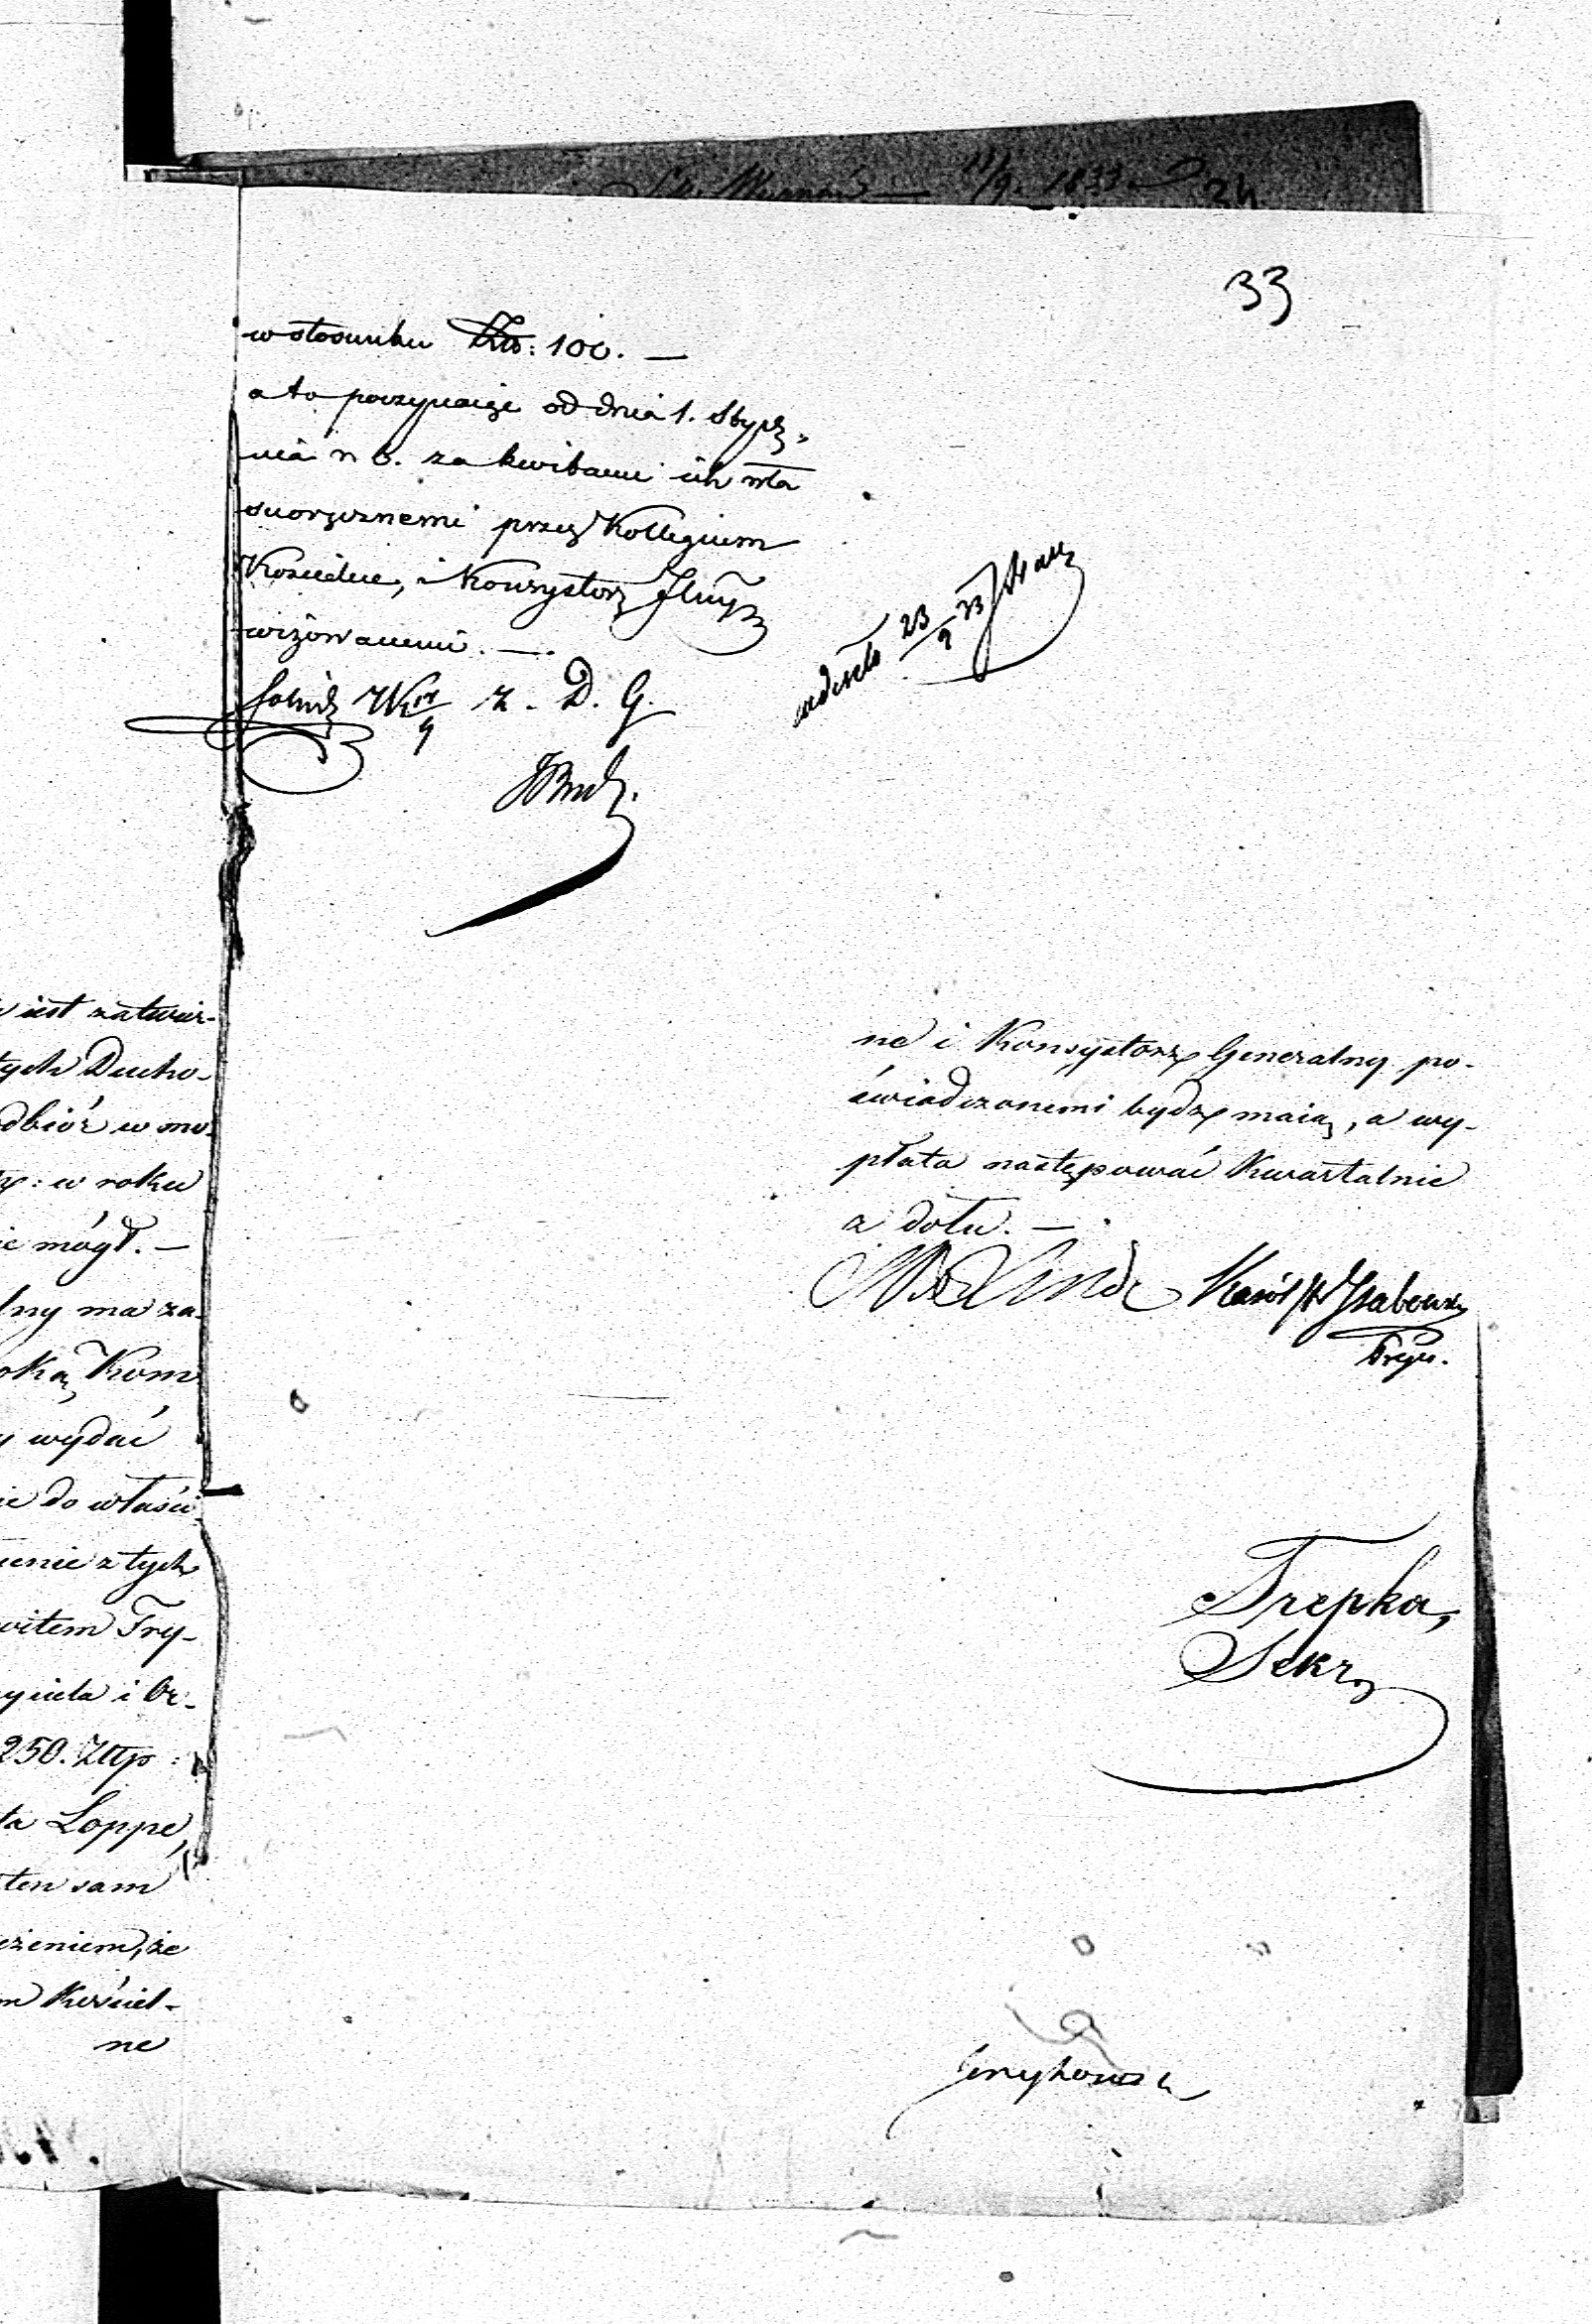 11/9. 1833
24
33
w stosunku Złp: 100. —
a to poczynaiąc od dnia 1. Stycz-
nia r b. za kwitami ich wła
snoręcznemi przez Kollegium
Kościelne, i Konsystorz
wizowanemi. —.
z. D. G.
23/9 33
iest zatwier-
tych Ducho-
odbiór w mo-
: w roku
ie mógł. —
lny ma za-
oką Kom
wydać
ie do właści
enie z tych
witem Try-
yciela i Or-
250. Złtp:
ta Loppe,
ten sam
eżeniem, że
m Kościel-
ne
ne i Konsystorz Generalny po-
świadczonemi bydź maią, a wy-
płata następować kwartalnie
z dołu. —
Linde Karól
Trepka,
Sekr